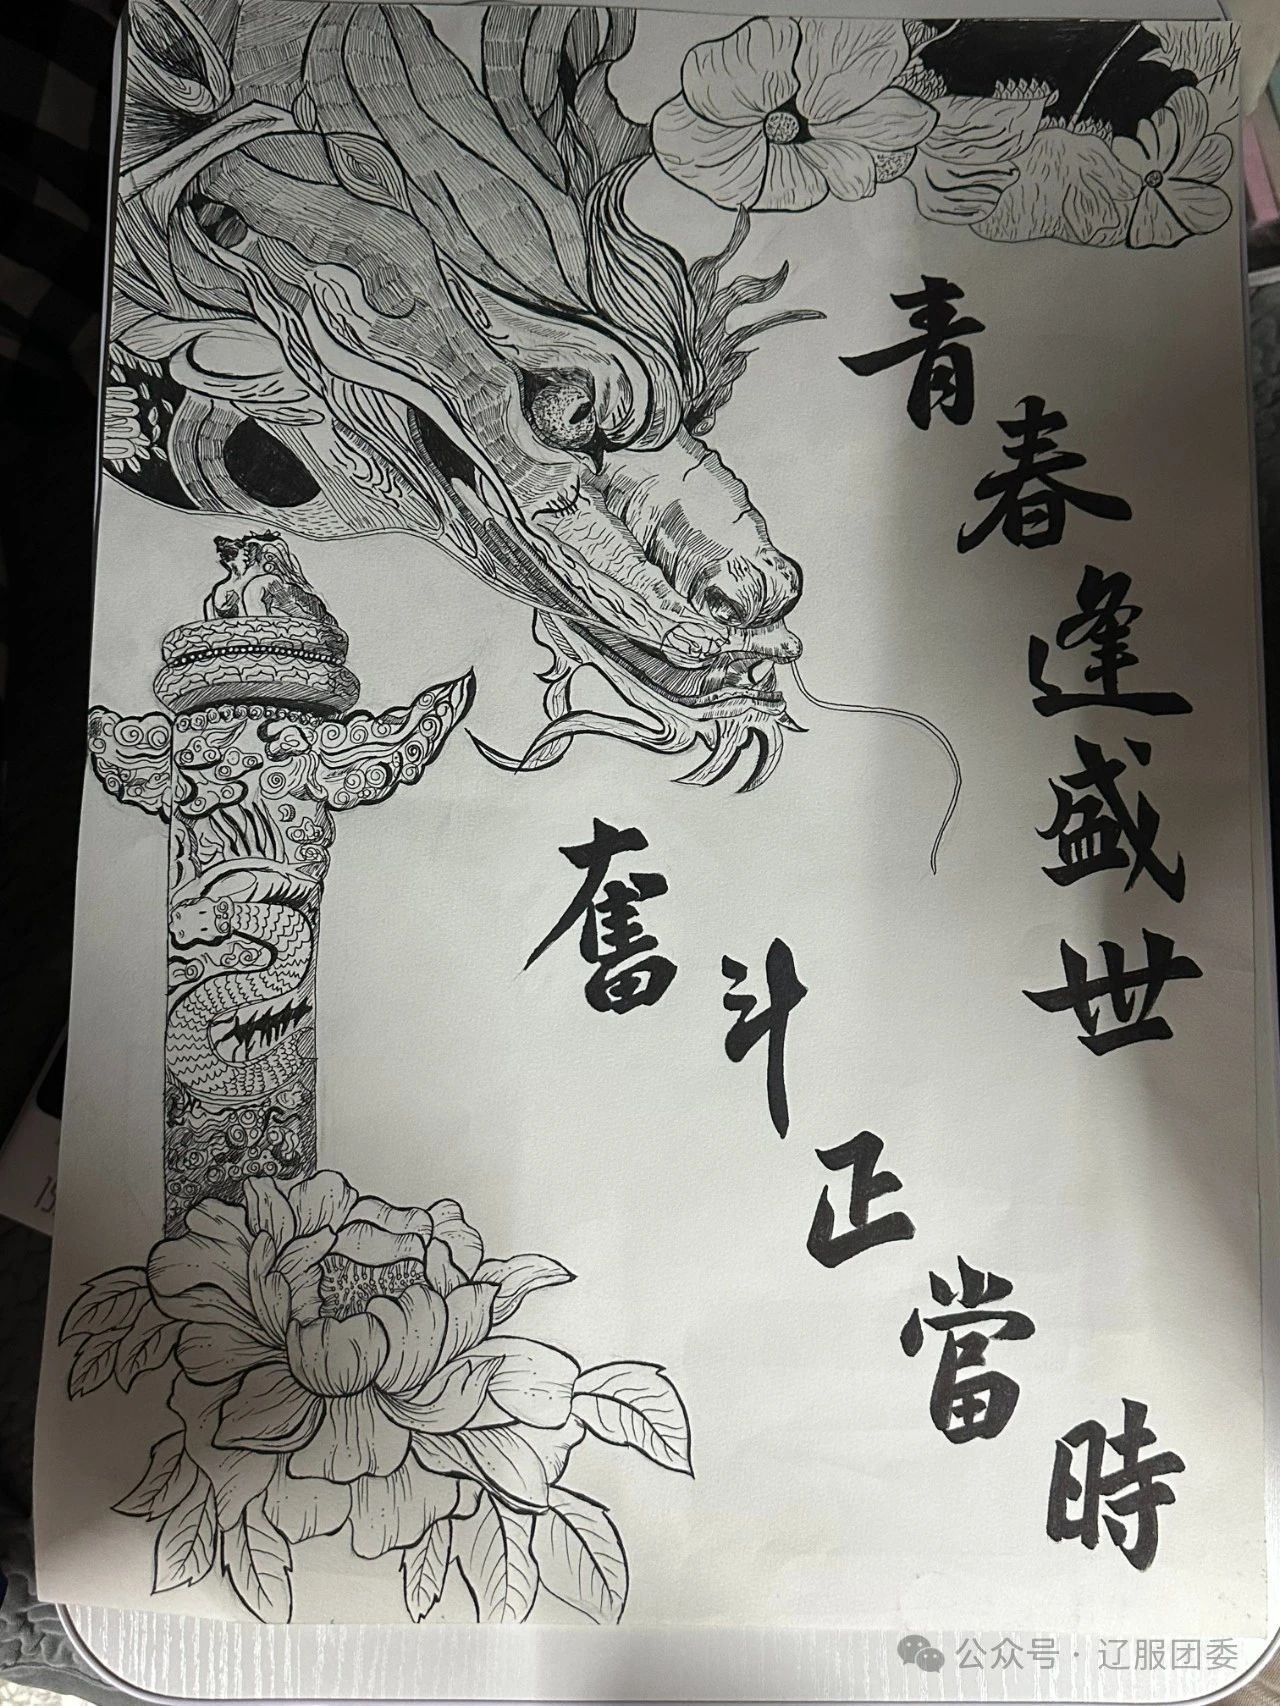 青春逢盛世
奮斗正當時
公众号·辽服团委